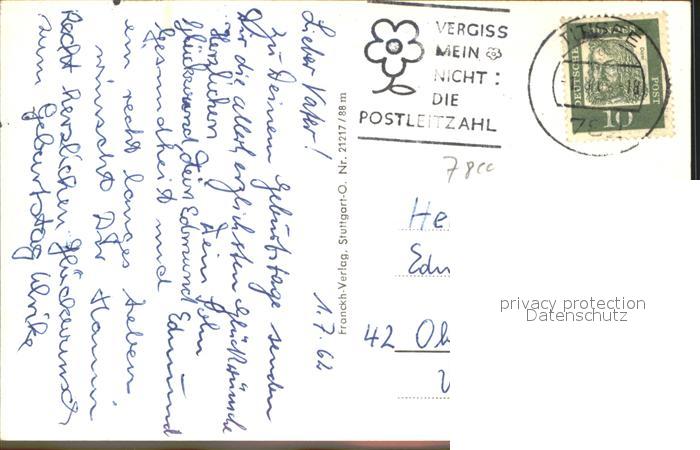 1. 7. 62
Lieber Vater!
Zu Deinem Geburtstage senden
wir die allerherzlichsten Glückwünsche
Dein Sohn
Herzlichen
Glückwunsch Dein Edmund
Gesundheit und
ein recht langes Leben
wünscht Dir Hanni
Recht herzlichen Glückwunsch
zum Geburtstag Ulrike
Franckh-Verlag, Stuttgart-O., Nr. 21217/88 m
VERGISS
MEIN
NICHT:
DIE
POSTLEITZAHL
DEUTSCHE
POST
10
He
Edm
42 Ob
privacy protection
Datenschutz